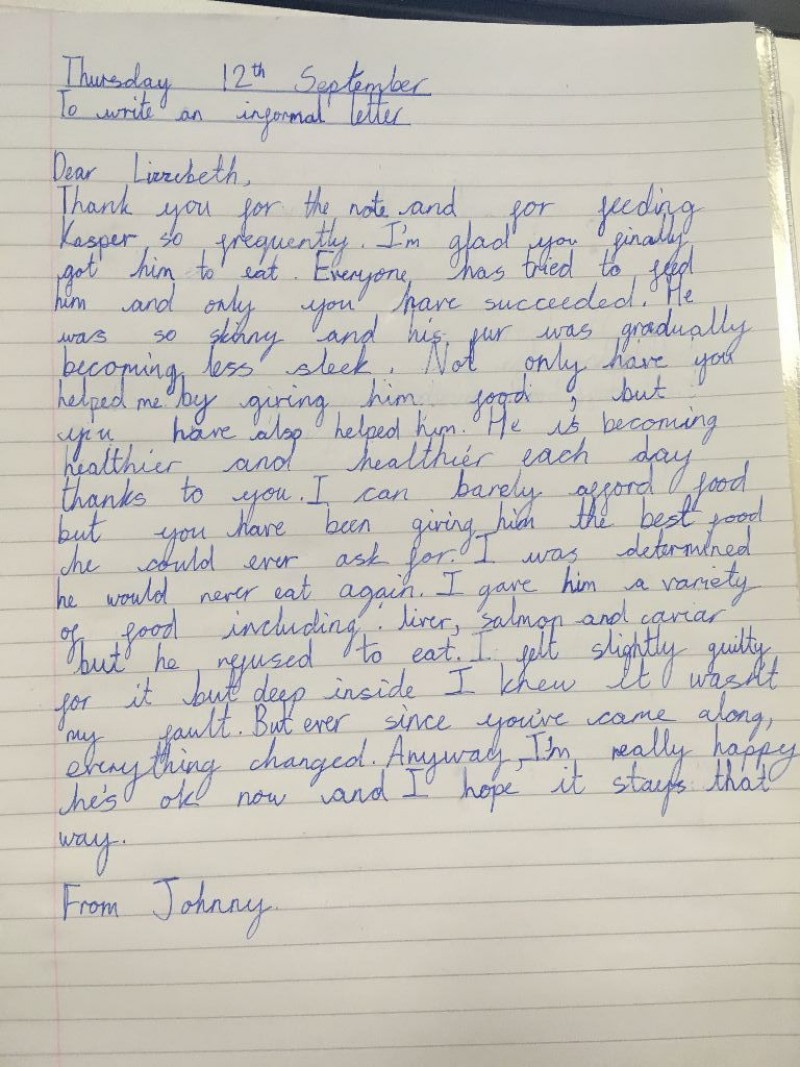 Thursday 12th September
To write an informal letter
Dear Lizzebeth,
Thank you for the note and for feeding
Kasper so frequently. I'm glad you finally
got him to eat. Everyone has tried to feed
him and only you have succeeded. He
was so skinny and his fur was gradually
becoming less sleek. Not only have you
helped me by giving him food, but
you have also helped him. He is becoming
healthier and healthier each day
thanks to you. I can barely afford food
but you have been giving him the best food
he could ever ask for. I was determined
he would never eat again. I gave him a variety
of food including: liver, salmon and caviar
but he refused to eat. I felt slightly guilty
for it but deep inside I knew it wasn't
my fault. But ever since you've came along,
everything changed. Anyway, I'm really happy
he's ok now and I hope it stays that
way.
From Johnny.